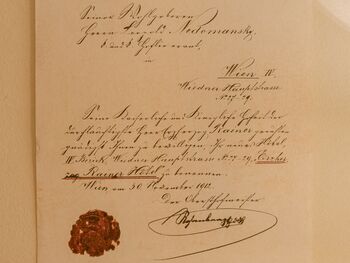 Seiner Wohlgeboren
Herrn Leopold Nedomansky,
k. und k. Hoflieferant,
in
Wien IV.
Wiedner Hauptstrasse
N° 27-29.
Seine Kaiserliche und Königliche Hoheit der
durchlauchtigste Herr Erzherzog Rainer geruhten
gnädigst Ihnen zu bewilligen, Ihr neues Hôtel,
IV. Bezirk, Wiedner Hauptstrasse N° 27-29, „Erzher-
zog Rainer Hôtel" zu benennen.
Wien am 30 November 1912.
Der Obersthofmeister